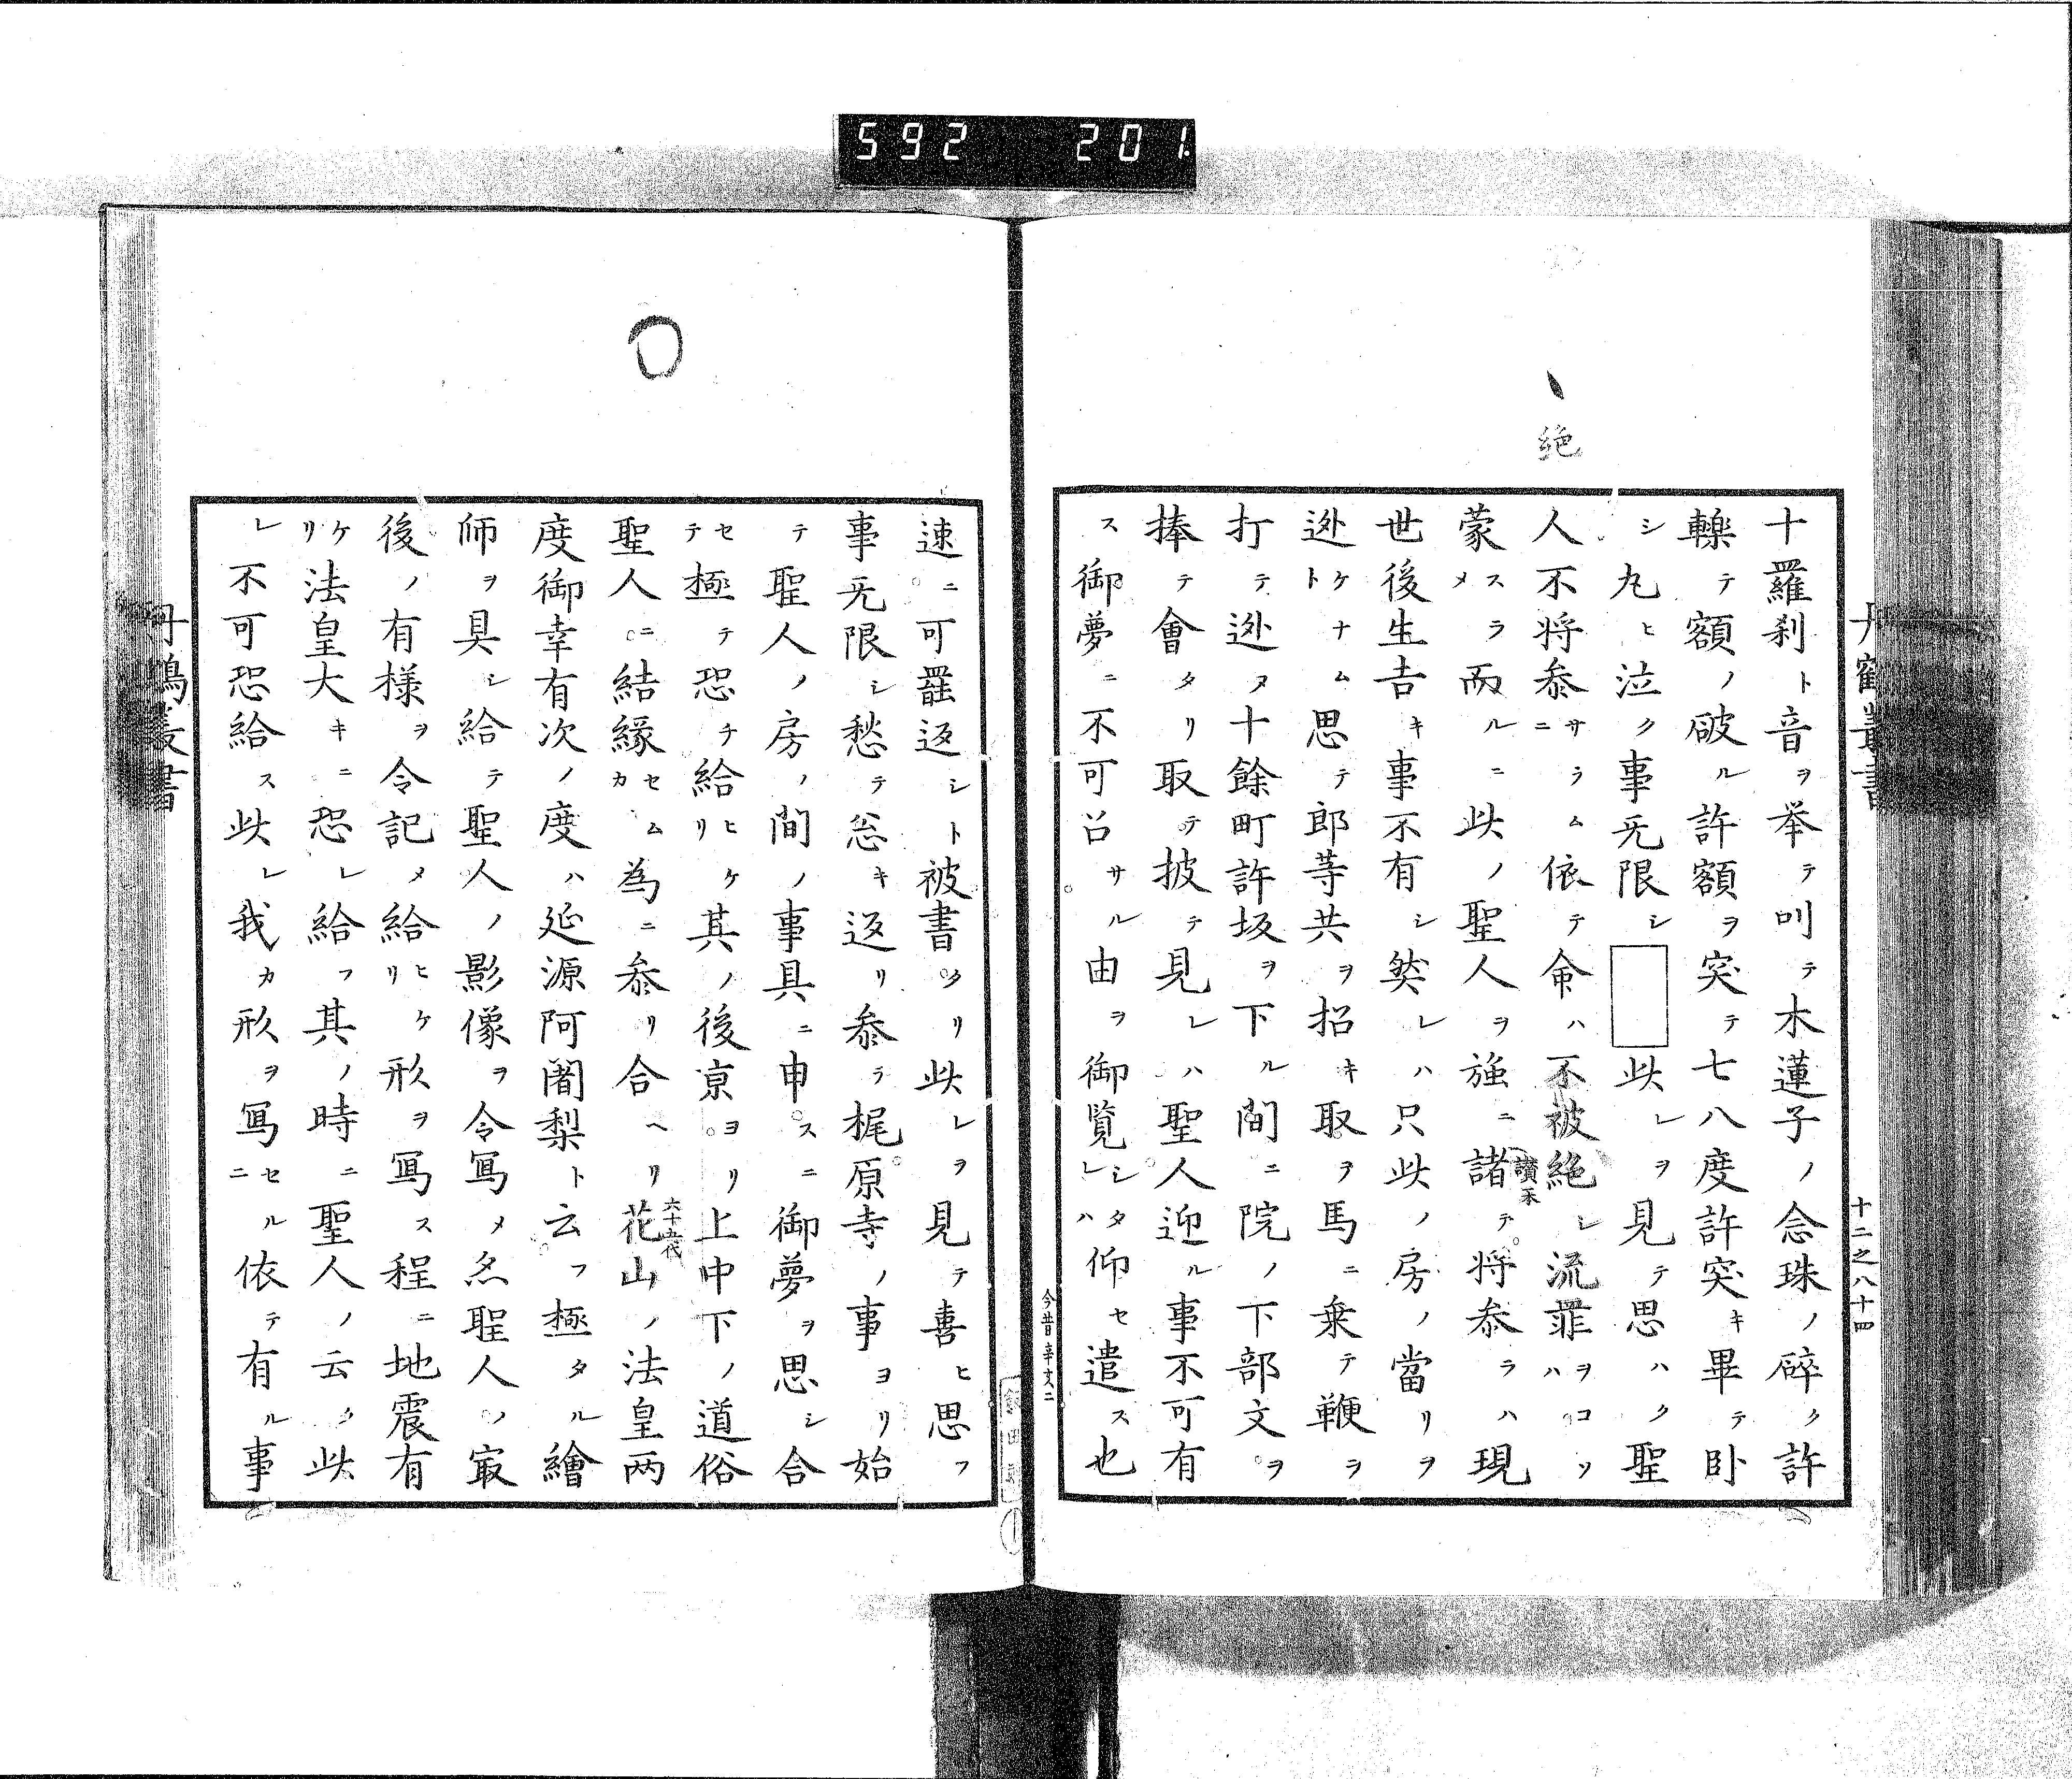 592 201
絶
丹鶴叢書
十二之八十四
十羅刹ト音ヲ挙テ叫テ木蓮子ノ念珠ノ砕ク許
轢テ額ノ破ル許額ヲ突テ七八度許突キ畢テ臥
シ丸ヒ泣ク事无限シ 此レヲ見テ思ハク聖
人不将参サラムニ依テ命ハ不被絶レ流罪ヲコソハ
蒙ラメスラ而ルニ此ノ聖人ヲ強ニ諸テ将参ラハ現
讃禾
世後生吉キ事不有シ然レハ只此ノ房ノ當リヲ
迯ケナムト思テ郎等共ヲ招キ取ヲ馬ニ乗テ鞭ヲ
打テ迯ヌ十餘町許坂ヲ下ル間ニ院ノ下部文ヲ
捧テ會タリ取テ披テ見レハ聖人迎ル事不可有
ス御夢ニ不可召サル由ヲ御覧シタレハ仰セ遣ス也
今昔
速ニ可罷返シト被書タリ此レヲ見テ喜ヒ思フ
事无限シ愁テ忩キ返リ参ラ梶原寺ノ事ヨリ始
テ聖人ノ房ノ間ノ事具ニ申スニ御夢ヲ思シ合
セテ極テ恐チ給ヒケリ其ノ後京ヨリ上中下ノ道俗
聖人ニ結縁セムカ為ニ参リ合ヘリ花山ノ法皇两
六十五代
度御幸有次ノ度ハ延源阿闍梨ト云フ極タル繪
師ヲ具シ給テ聖人ノ影像ヲ令冩メ亦聖人ノ冣
後ノ有様ヲ令記メ給ヒケリ形ヲ冩ス程ニ地震有
ケリ法皇大キニ恐レ給フ其ノ時ニ聖人ノ云ク此
レ不可恐給ス此レ我カ形ヲ冩セルニ依テ有ル事
丹鶴叢書